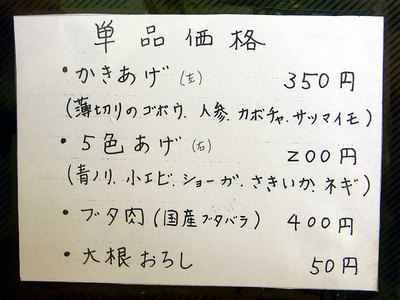 単品価格
・かきあげ(左) 350円
(薄切りのゴボウ、人参、カボチャ、サツマイモ)
・5色あげ(右) 200円
(青ノリ、小エビ、ショーガ、さきいか、ネギ)
・ブタ肉(国産ブタバラ) 400円
・大根おろし 50円